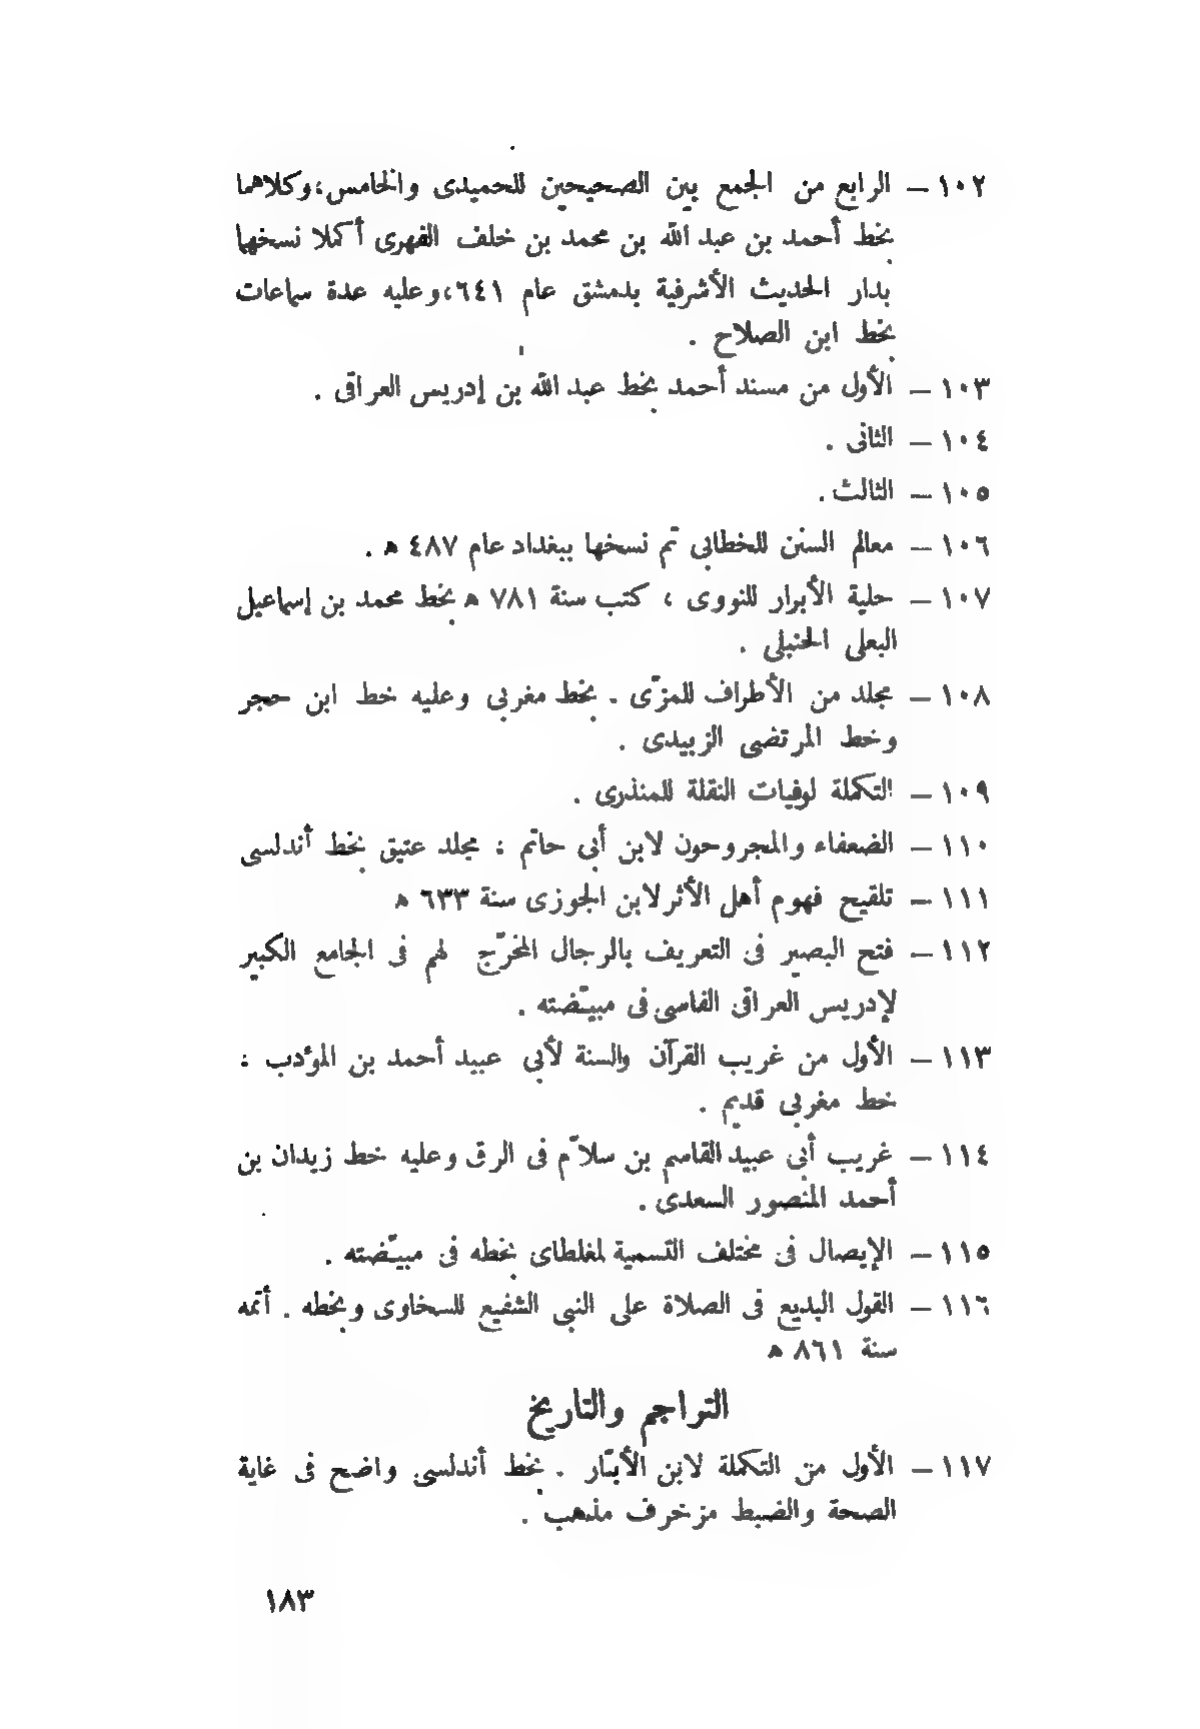 ١٠٢ – الرابع من الجمع بين الصحيحين للحميدى والخامس،وكلاهما
بخط أحمد بن عبد الله بن محمد بن خلف الفهرى أكملا نسخها
بدار الحديث الأشرفية بدمشق عام ٦٤١،وعليه عدة سماعات
بخط ابن الصلاح .
١٠٣ – الأول من مسند أحمد بخط عبد الله بن إدريس العراقى .
١٠٤ – الثانى .
١٠٥ – الثالث .
١٠٦ – معالم السنن للخطابى تم نسخها ببغداد عام ٤٨٧ هـ .
١٠٧ – حلية الأبرار للنووى ، كتب سنة ٧٨١ هـ بخط محمد بن إسماعيل
البعلى الحنبلى .
١٠٨ – مجلد من الأطراف للمزّى . بخط مغربى وعليه خط ابن حجر
وخط المرتضى الزبيدى .
١٠٩ – التكملة لوفيات النقلة للمنذرى .
١١٠ – الضعفاء والمجروحون لابن أبى حاتم : مجلد عتيق بخط أندلسى
١١١ – تلقيح فهوم أهل الأثر لابن الجوزى سنة ٦٣٣ هـ
١١٢ – فتح البصير فى التعريف بالرجال المخرّج لهم فى الجامع الكبير
لإدريس العراقى الفاسى فى مبيّضته .
١١٣ – الأول من غريب القرآن والسنة لأبى عبيد أحمد بن المؤدب :
خط مغربى قديم .
١١٤ – غريب أبى عبيد القاسم بن سلاّم فى الرق وعليه خط زيدان بن
أحمد المنصور السعدى .
١١٥ – الإيصال فى مختلف التسمية لمغلطاى بخطه فى مبيّضته .
١١٦ – القول البديع فى الصلاة على النبى الشفيع للسخاوى وبخطه . أتمه
سنة ٨٦١ هـ
التراجم والتاريخ
١١٧ – الأول من التكملة لابن الأبّار . بخط أندلسى واضح فى غاية
الصحة والضبط مزخرف مذهب .
١٨٣